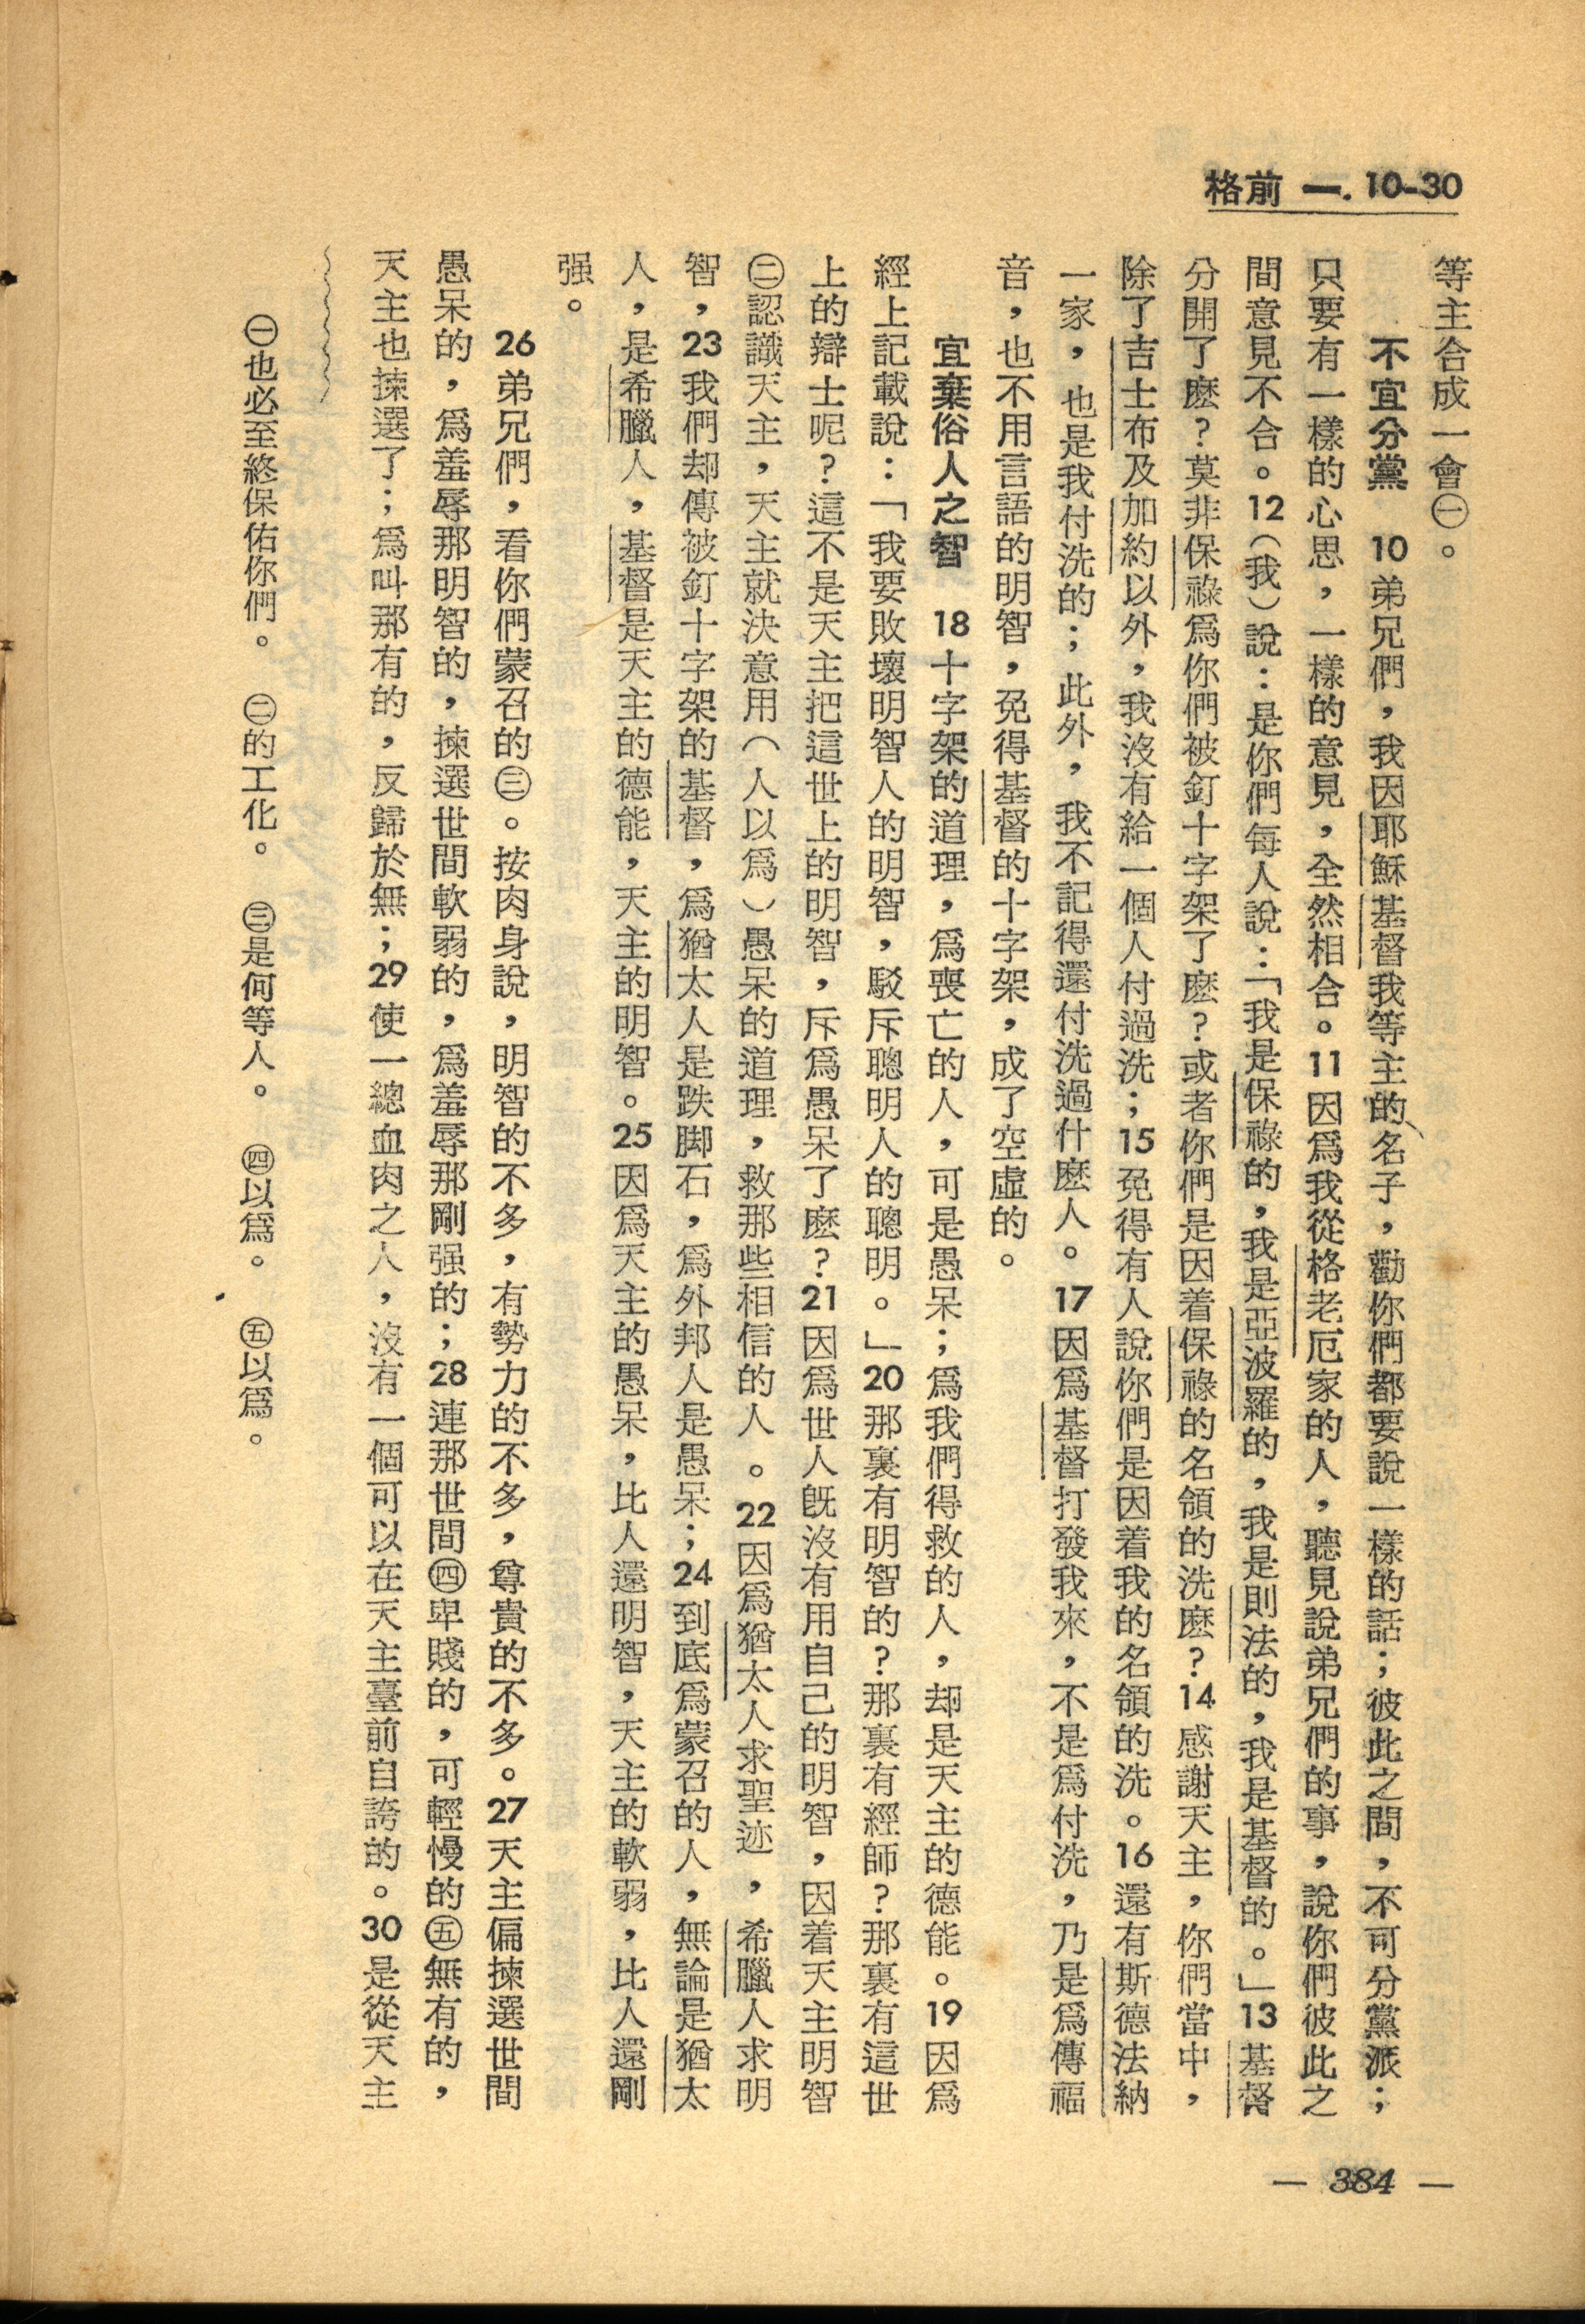 格前 一. 10-30
等主合成一會㊀。
不宜分黨　10弟兄們，我因耶穌基督我等主的名子，勸你們都要說一樣的話；彼此之間，不可分黨派；
只要有一樣的心思，一樣的意見，全然相合。11因爲我從格老厄家的人，聽見說弟兄們的事，說你們彼此之
間意見不合。12（我）說：是你們每人說：「我是保祿的，我是亞波羅的，我是則法的，我是基督的。」13基督
分開了麽？莫非保祿爲你們被釘十字架了麽？或者你們是因着保祿的名領的洗麽？14感謝天主，你們當中，
除了吉士布及加約以外，我沒有給一個人付過洗；15免得有人說你們是因着我的名領的洗。16還有斯德法納
一家，也是我付洗的；此外，我不記得還付洗過什麽人。17因爲基督打發我來，不是爲付洗，乃是爲傳福
音，也不用言語的明智，免得基督的十字架，成了空虛的。
宜棄俗人之智　18十字架的道理，爲喪亡的人，可是愚呆；爲我們得救的人，却是天主的德能。19因爲
經上記載說：「我要敗壞明智人的明智，駁斥聰明人的聰明。」20那裏有明智的？那裏有經師？那裏有這世
上的辯士呢？這不是天主把這世上的明智，斥爲愚呆了麽？21因爲世人旣沒有用自己的明智，因着天主明智
㊁認識天主，天主就決意用（人以爲）愚呆的道理，救那些相信的人。22因爲猶太人求聖迹，希臘人求明
智，23我們却傳被釘十字架的基督，爲猶太人是跌脚石，爲外邦人是愚呆；24到底爲蒙召的人，無論是猶太
人，是希臘人，基督是天主的德能，天主的明智。25因爲天主的愚呆，比人還明智，天主的軟弱，比人還剛
强。
26弟兄們，看你們蒙召的㊂。按肉身說，明智的不多，有勢力的不多，尊貴的不多。27天主偏揀選世間
愚呆的，爲羞辱那明智的，揀選世間軟弱的，爲羞辱那剛强的；28連那世間㊃卑賤的，可輕慢的㊄無有的，
天主也揀選了；爲叫那有的，反歸於無；29使一總血肉之人，沒有一個可以在天主臺前自誇的。30是從天主
㊀也必至終保佑你們。　㊁的工化。　㊂是何等人。　㊃以爲。　㊄以爲。
— 384 —